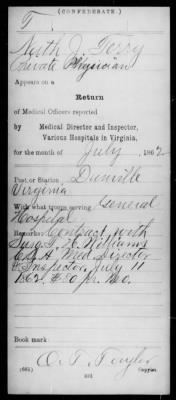 (CONFEDERATE.)
T
Nath J. Terry
Private Physician
Appears on a
Return
of Medical Officers reported
by
Medical Director and Inspector,
Various Hospitals in Virginia,
for the month of July, 1862
Post or Station Danville
Virginia
With what troops serving General
Hospital
Remarks: Contract with
Surg. T. H. Williams
C.S.A. Med. Director
& Inspector, July 11
1862, $50 pr. Mo.
Book mark
O. T. Taylor
Copyist.